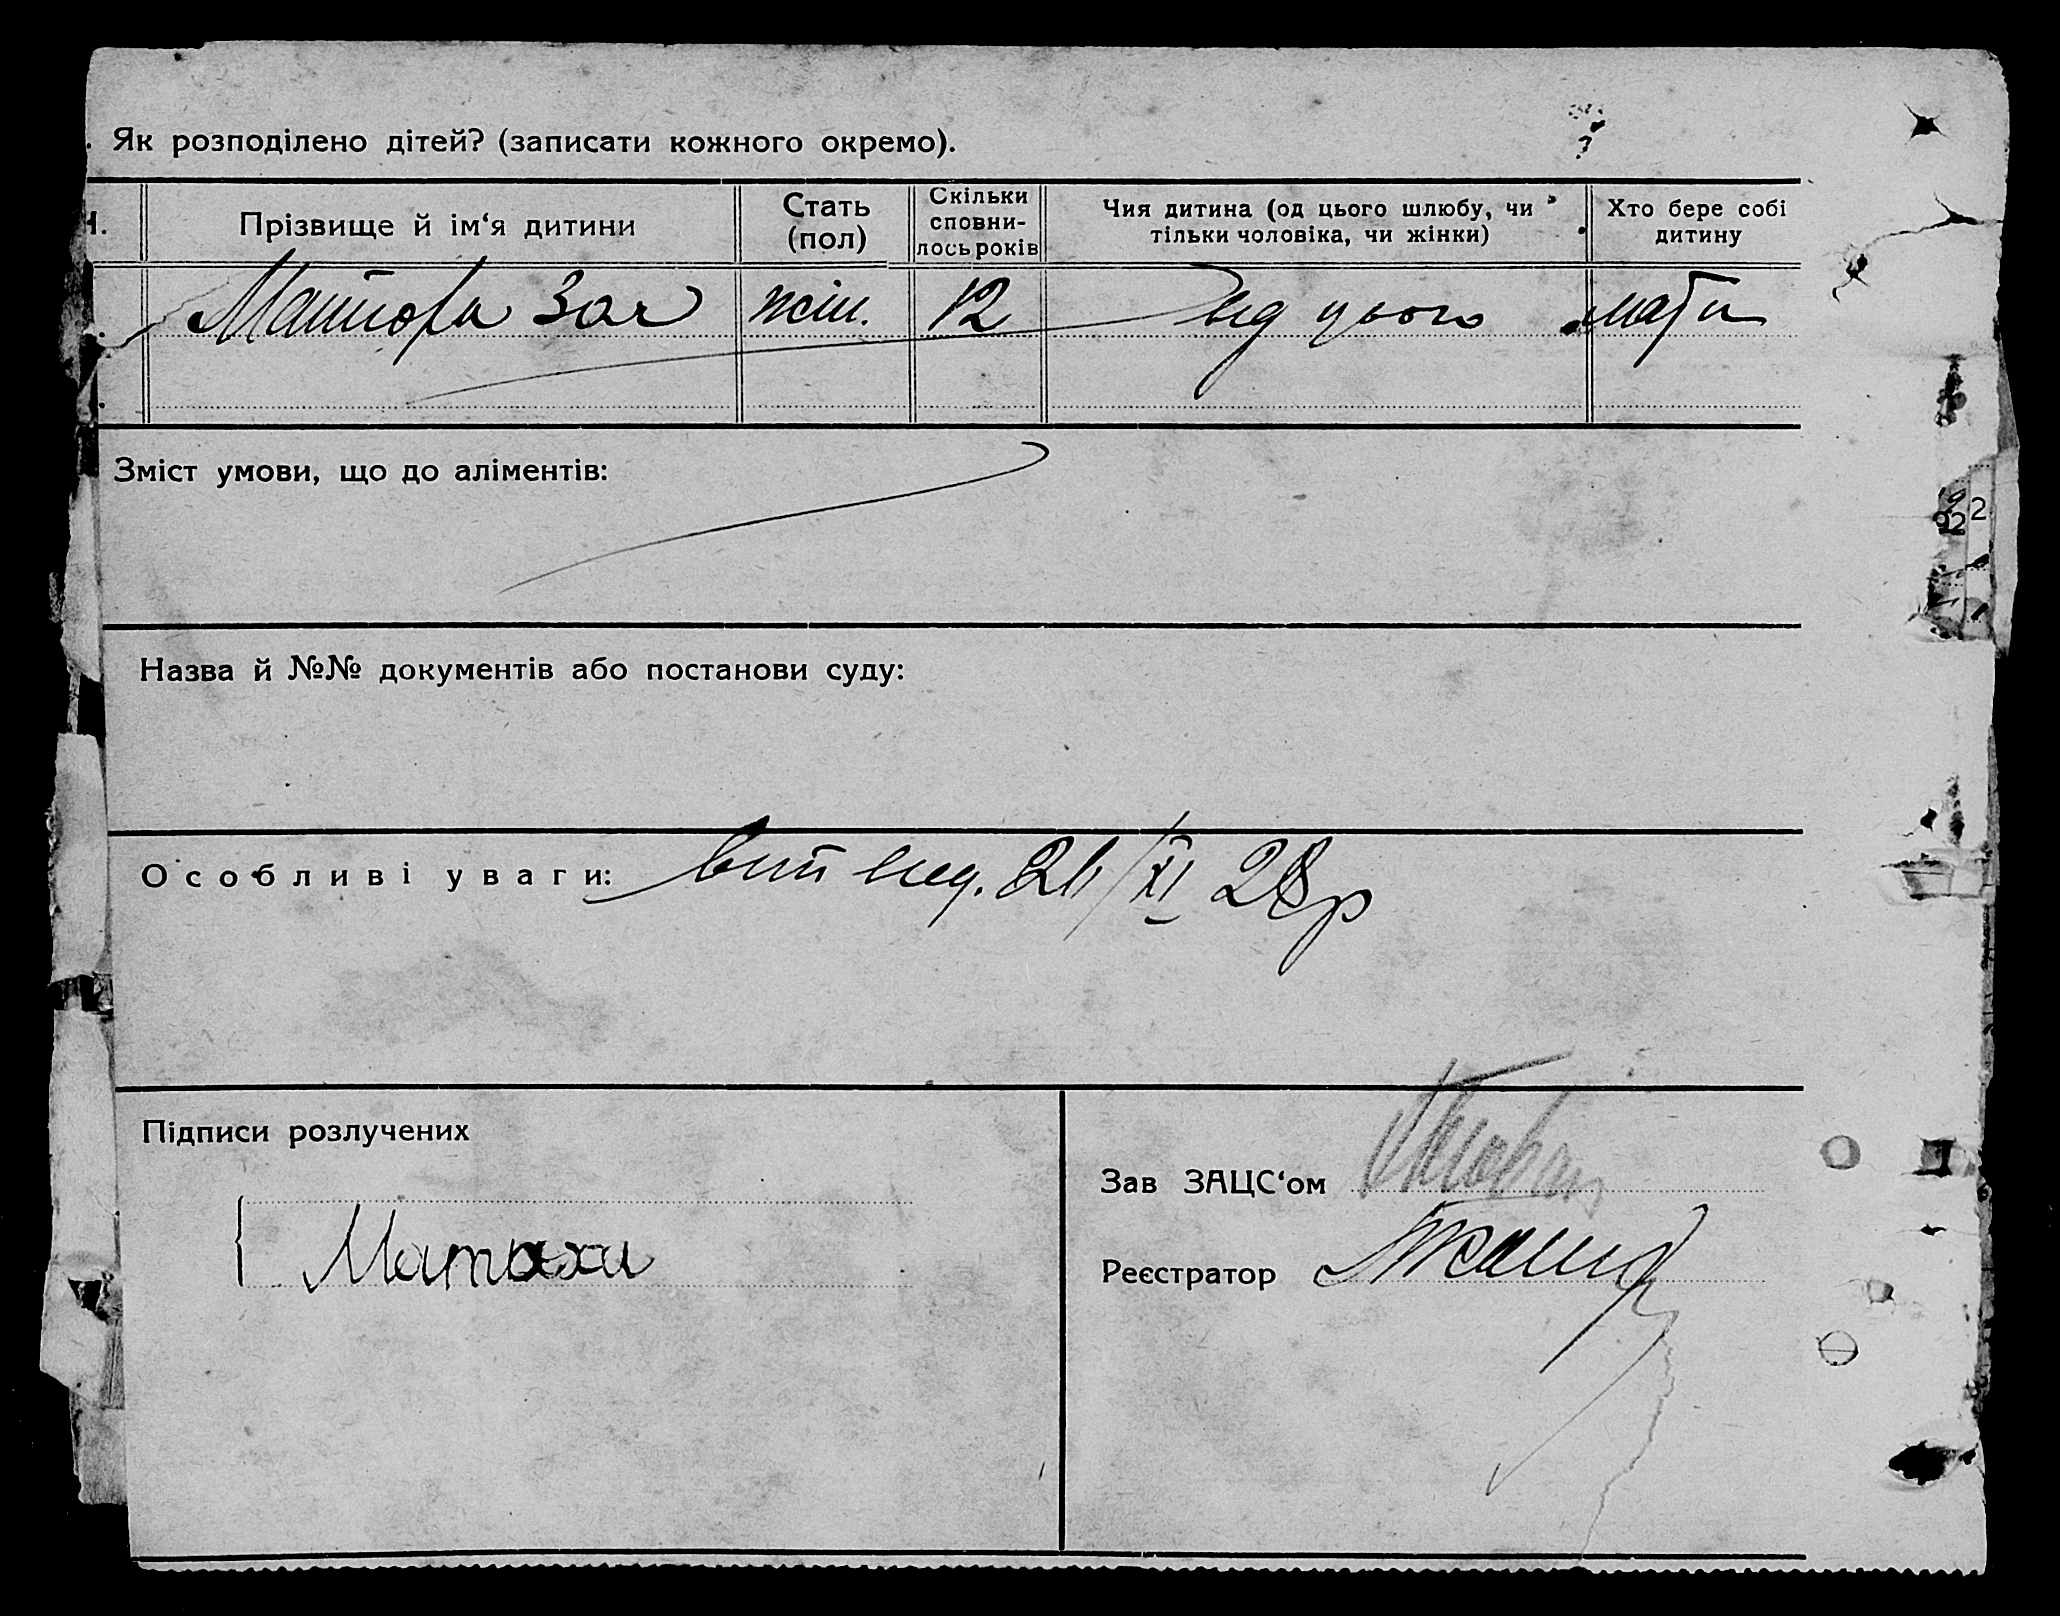 Як розподілено дітей? (записати кожного окремо).
Прізвище й ім‘я дитини
Стать (пол)
Скільки сповни-лось років
Чия дитина (од цього шлюбу, чи тільки чоловіка, чи жінки)
Хто бере собі дитину
Зоя жін. 12 від цього мати
Зміст умови, що до аліментів:
Назва й №№ документів або постанови суду:
Особливі уваги: вип вид. 26/XI 28 р
Підписи розлучених
Зав ЗАЦС‘ом
Реєстратор